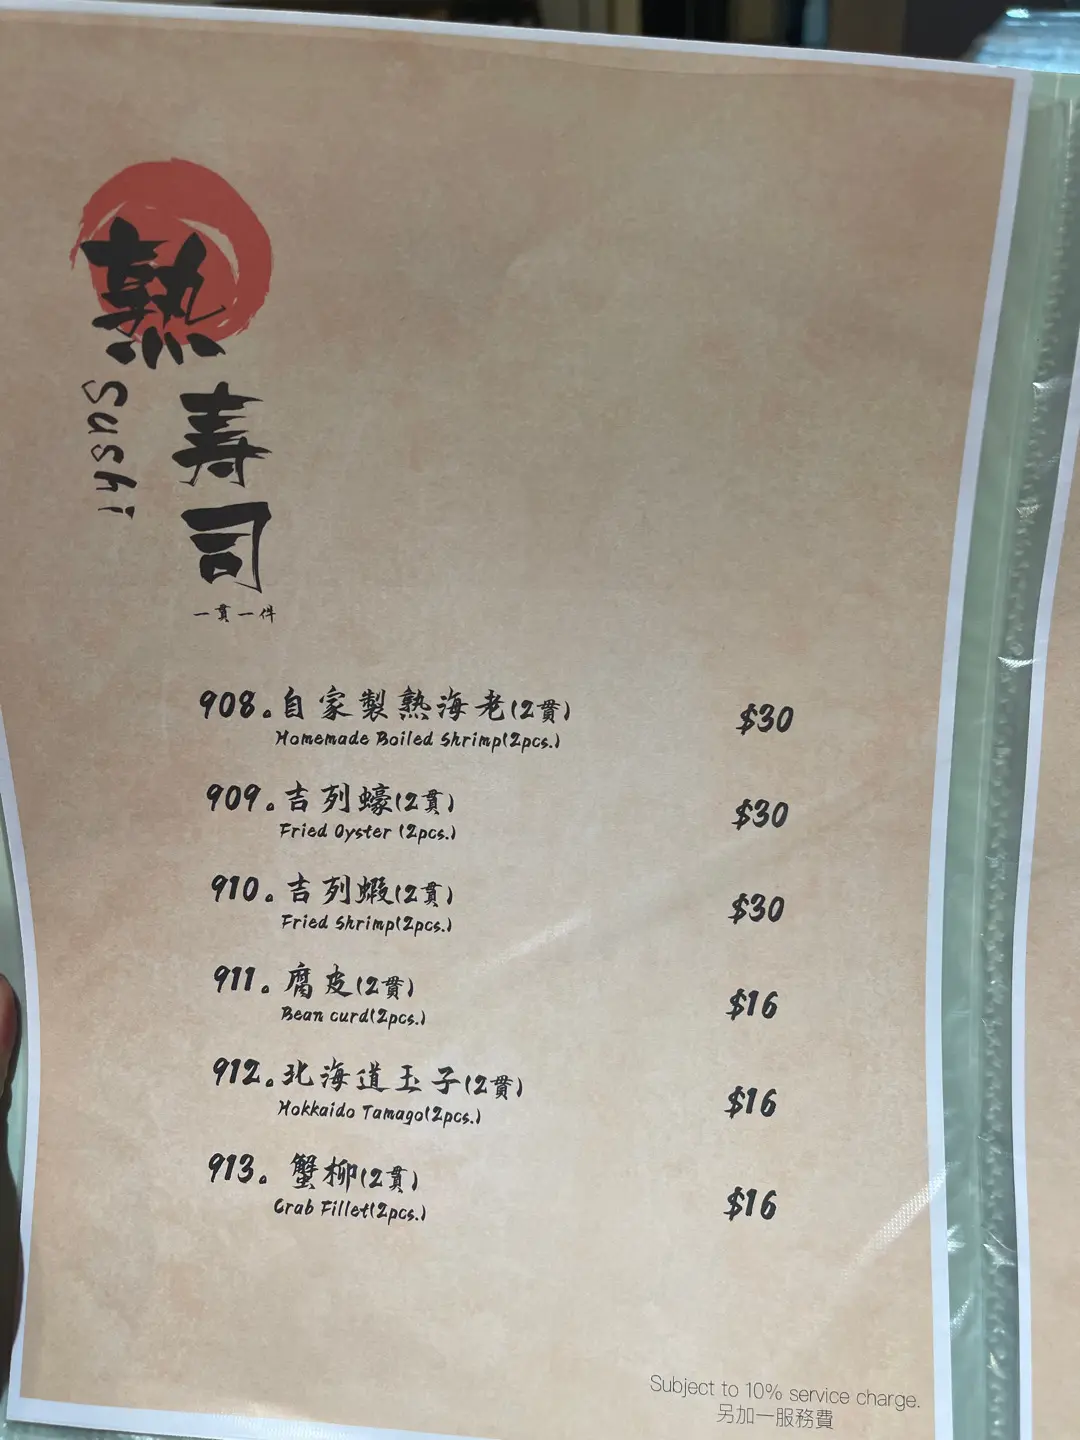 熟
Sushi
寿司
一貫一件
908。自家製熟海老(2貫) $30
Homemade Boiled Shrimp(2pcs.)
909。吉列蠔(2貫) $30
Fried Oyster (2pcs.)
910。吉列蝦(2貫) $30
Fried Shrimp(2pcs.)
911。腐皮(2貫) $16
Bean curd(2pcs.)
912。北海道玉子(2貫) $16
Hokkaido Tamago(2pcs.)
913。蟹柳(2貫) $16
Crab Fillet(2pcs.)
Subject to 10% service charge.
另加一服務費